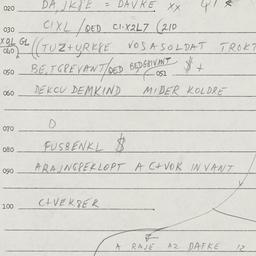 020 DA,JK8E = DAVKE XX
030 CIXL / QED CI·X2L7 (210
040 ((TUZ+URK8E VOSASOLDAT TROKT
050 BE,TGREVANT/QED BEDGRIVANT 051 $ +
060 DEKCU DEMKIND MIDER KOLDRE
070 D
080 FUSBENKL $
090 ARAJNGPEKLOPT A C+VOK IN VANT
100 C+VEK8ER
A RAJE AZ DAFKE IZ